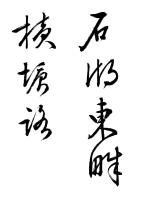 石湖東畔
橫塘路